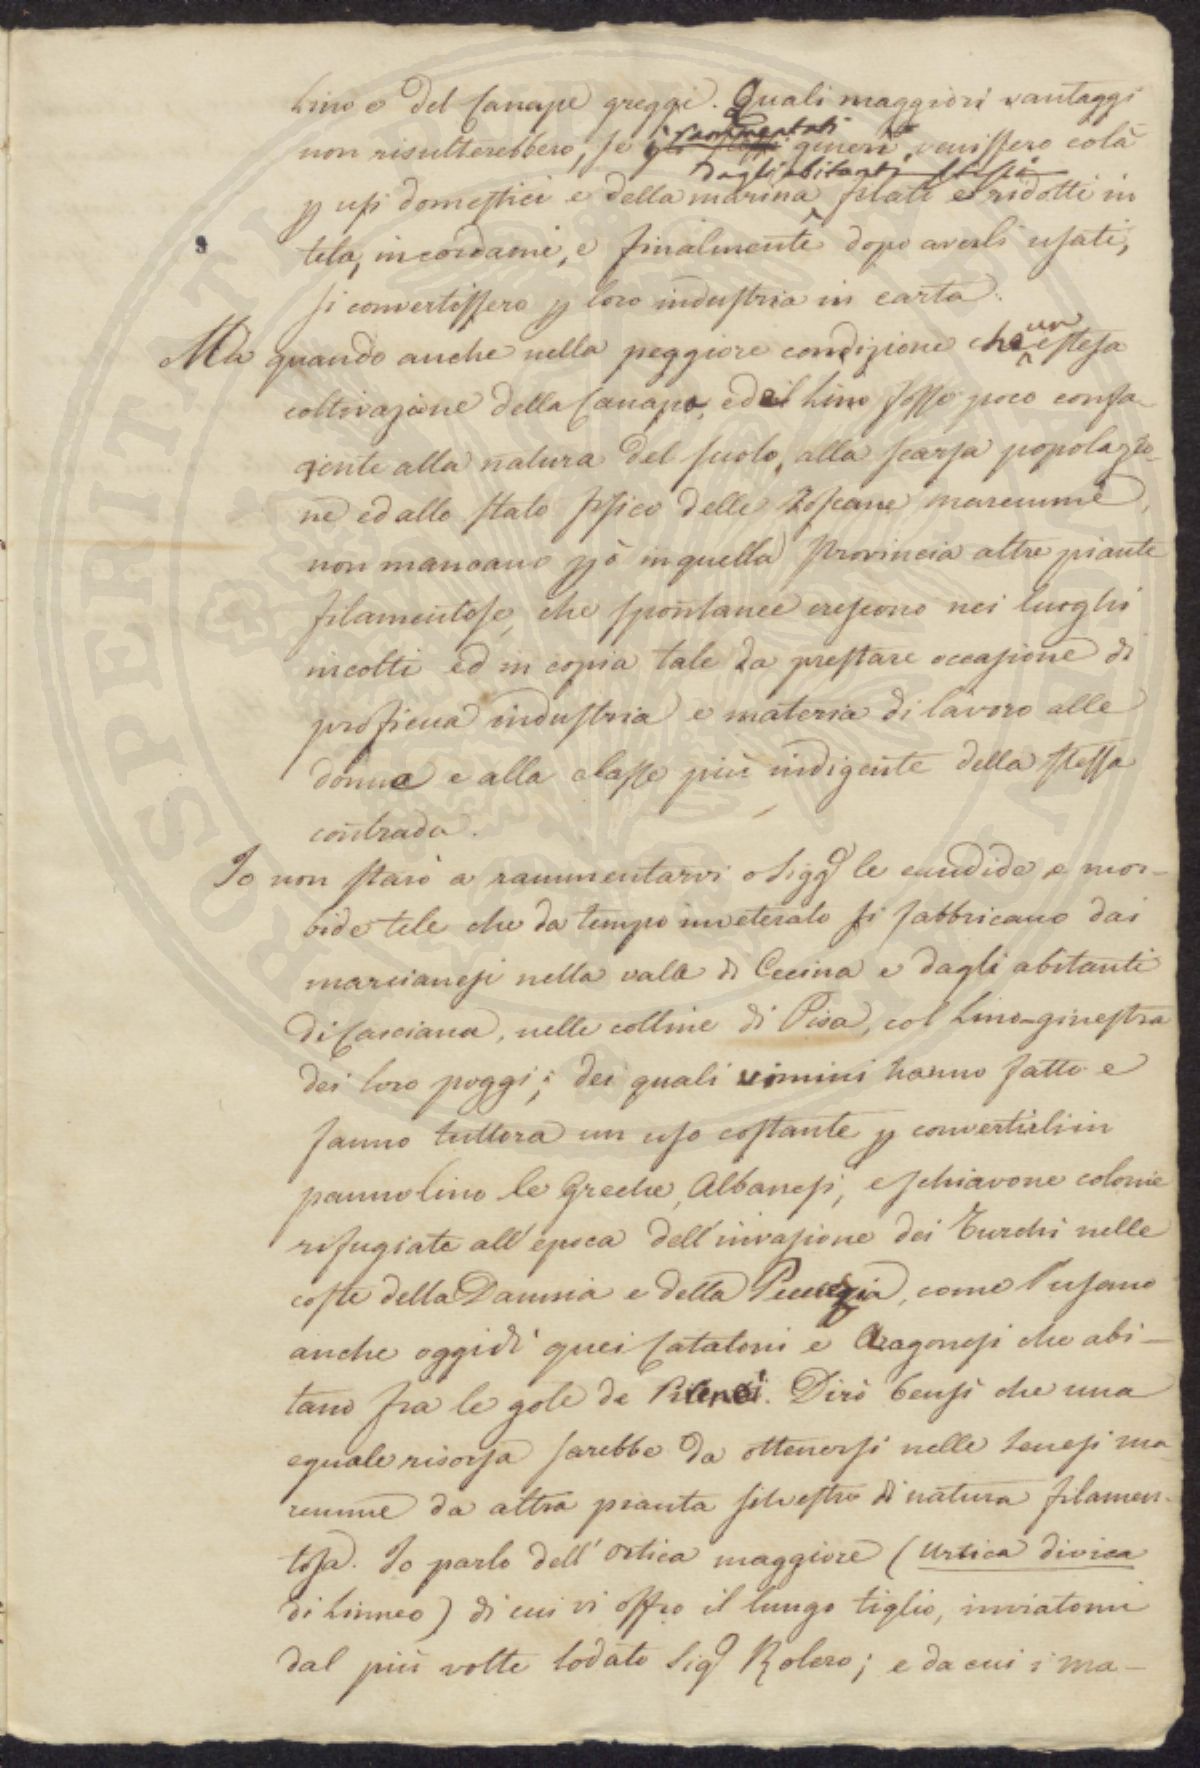 Lino e del Canape greggi. Quali maggiori vantaggi
non risulterebbero, se gli stessi rammentati generi venissero colà
dagli abitanti stessi
p usi domestici e della marina filati e ridotti in
tela, in cordami, e finalmente dopo averli usati,
si convertissero p loro industria in carta.
Ma quando anche nella peggiore condizione che un estesa
coltivazione della Canapa, ed il Lino fosse poco confa-
cente alla natura del suolo, alla scarsa popolazio-
ne ed allo stato fisico delle Toscane maremme,
non mancano pò in quella Provincia altre piante
filamentose, che spontanee crescono nei luoghi
incolti ed in copia tale da prestare occasione di
proficua industria e materia di lavoro alle
donne e alla classe più indigente della stessa
contrada.
Io non starò a rammentarvi o Sigg. le candide e mor-
bide tele che da tempo inveterato si fabbricano dai
marcianesi nella vale di Cecina e dagli abitanti
di Casciana, nelle colline di Pisa, col Lino-ginestra
dei loro poggi; dei quali vimini hanno fatto e
fanno tuttora un uso costante p convertirli in
pannolino le Greche, Albanesi, e schiavone colonie
rifugiate all'epoca dell'invasione dei Turchi nelle
coste della Daunia e della Peucezia, come l'usano
anche oggidì quei Cataloni e Aragonesi che abi-
tano fra le gole de Pirenei. Dirò bensì che una
eguale risorsa sarebbe da ottenersi nelle Senesi ma-
remme da altra pianta silvestre di natura filamen-
tosa. Io parlo dell'ortica maggiore (Urtica divica
di Linneo) di cui vi offro il lungo tiglio, inviatomi
dal più volte lodato Sig. Rolero; e da cui i ma-